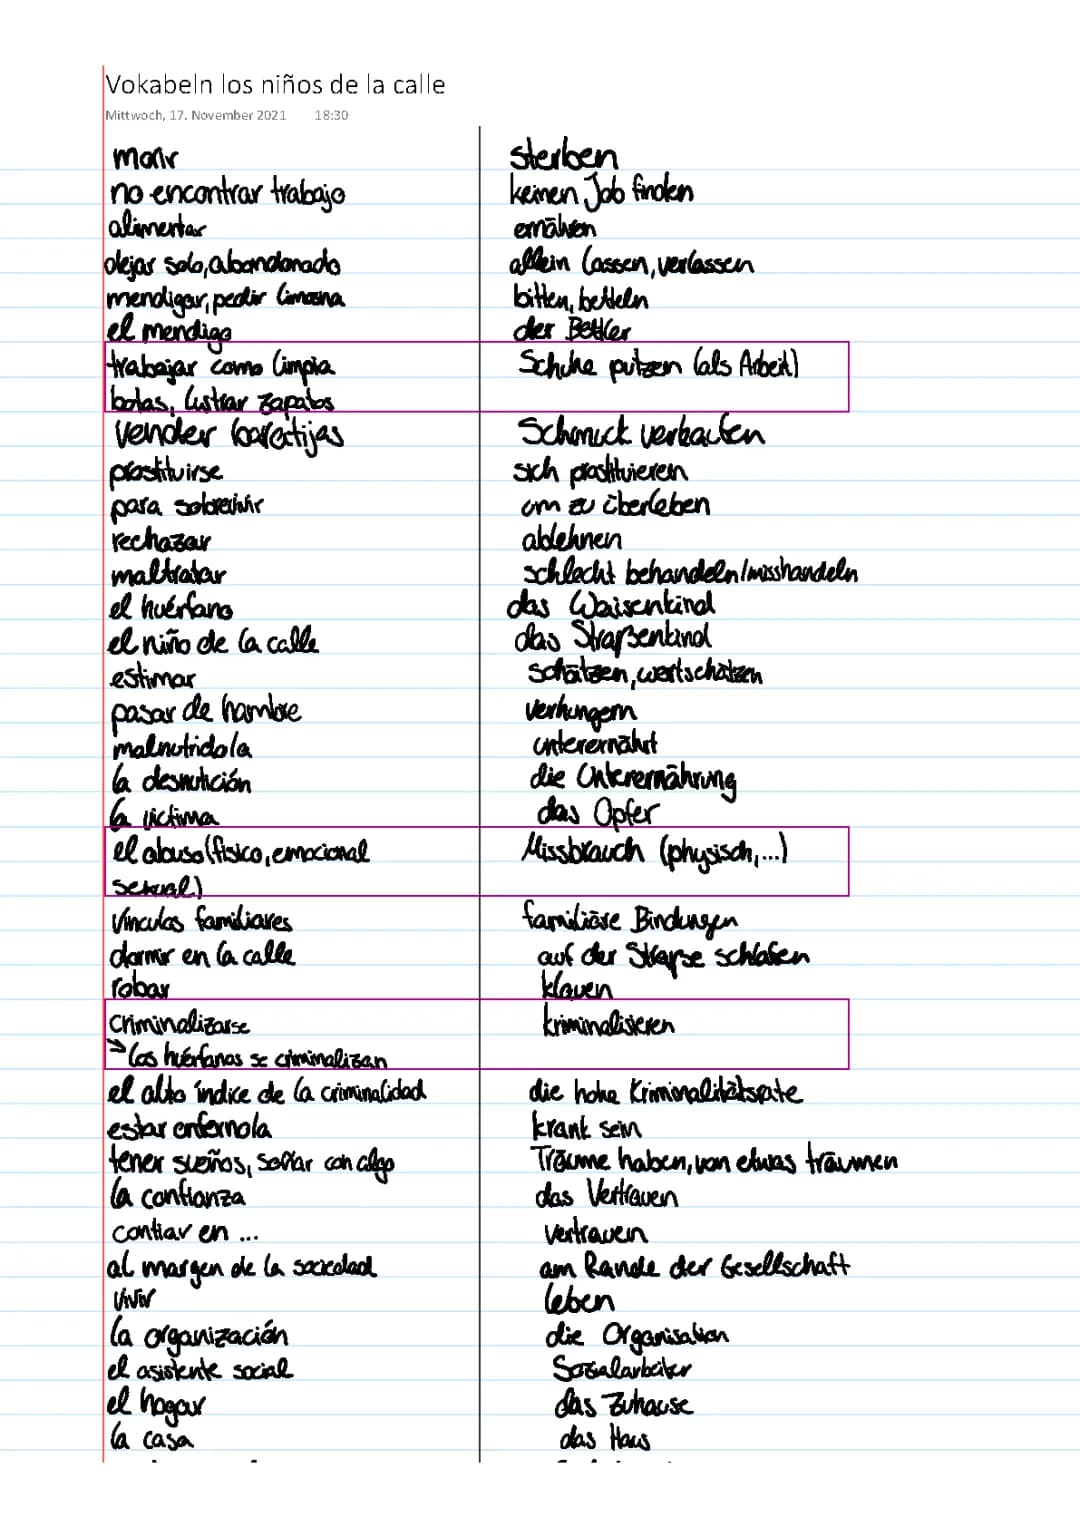 Vokabeln los niños de la calle
Mittwoch, 17. November 2021 18:30
morir sterben
no encontrar trabajo keinen Job finden
alimentar ernähren
dejar solo, abandonado allein lassen, verlassen
mendigar, pedir limosna bitten, betteln
el mendigo der Bettler
trabajar como limpia Schuhe putzen (als Arbeit)
botas, lustrar zapatos
vender baratijas Schmuck verkaufen
prostituirse sich prostituieren
para sobrevivir um zu überleben
rechazar ablehnen
maltratar schlecht behandeln/misshandeln
el huérfano das Waisenkind
el niño de la calle das Straßenkind
estimar schätzen, wertschätzen
pasar de hambre verhungern
malnutrido/a unterernährt
la desnutición die Unterernährung
la víctima das Opfer
el abuso (físico, emocional Missbrauch (physisch,...)
sexual)
Vínculos familiares familiäre Bindungen
dormir en la calle auf der Straße schlafen
robar klauen
criminalizarse kriminalisieren
→ los huérfanos se criminalizan
el alto índice de la criminalidad die hohe Kriminalitätsrate
estar enfermo/a krank sein
tener sueños, soñar con algo Träume haben, von etwas träumen
la confianza das Vertrauen
confiar en ... vertrauen
al margen de la sociedad am Rande der Gesellschaft
vivir leben
la organización die Organisation
el asistente social Sozialarbeiter
el hogar das Zuhause
la casa das Haus